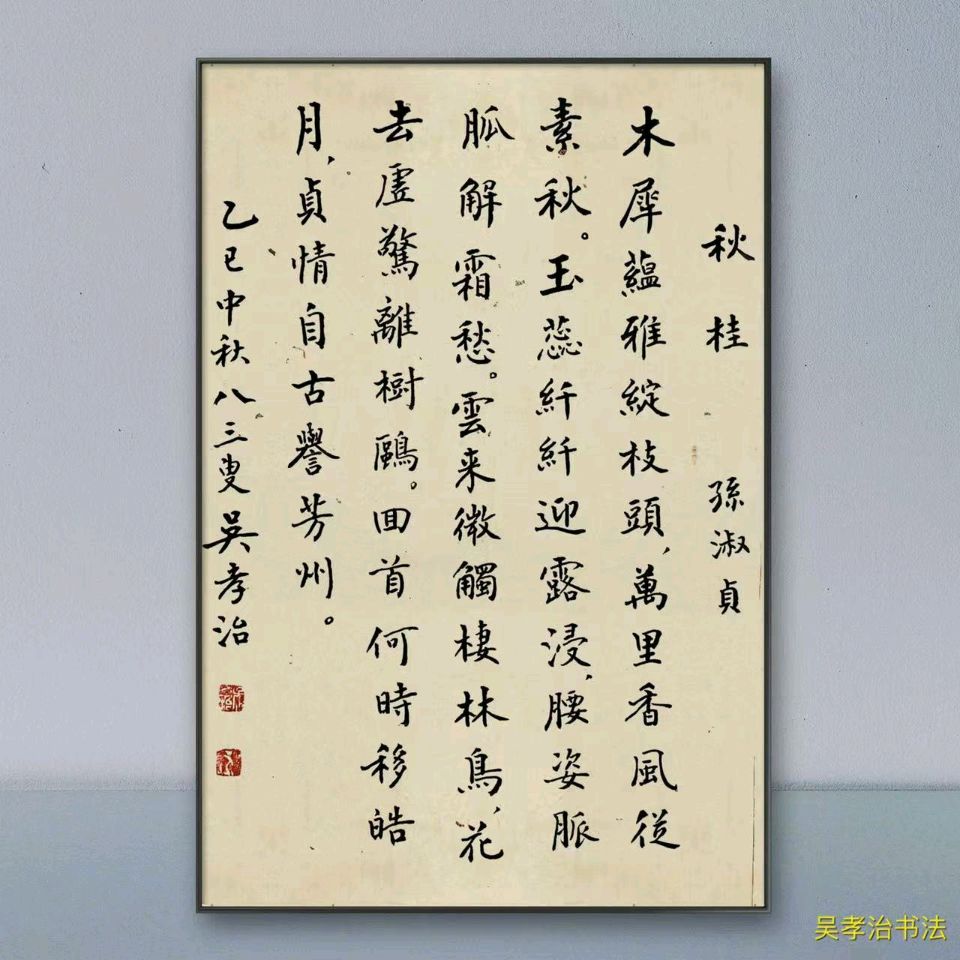 秋桂 孫淑貞
木犀蘊雅綻枝頭，萬里香風從
素秋。玉蕊纤纤迎露浸，腰姿脈
脈解霜愁。雲来微觸棲林鳥，花
去虛驚離樹鷗。回首何時移皓
月，貞情自古譽芳州。
乙巳中秋八三叟吳孝治
吴孝治书法